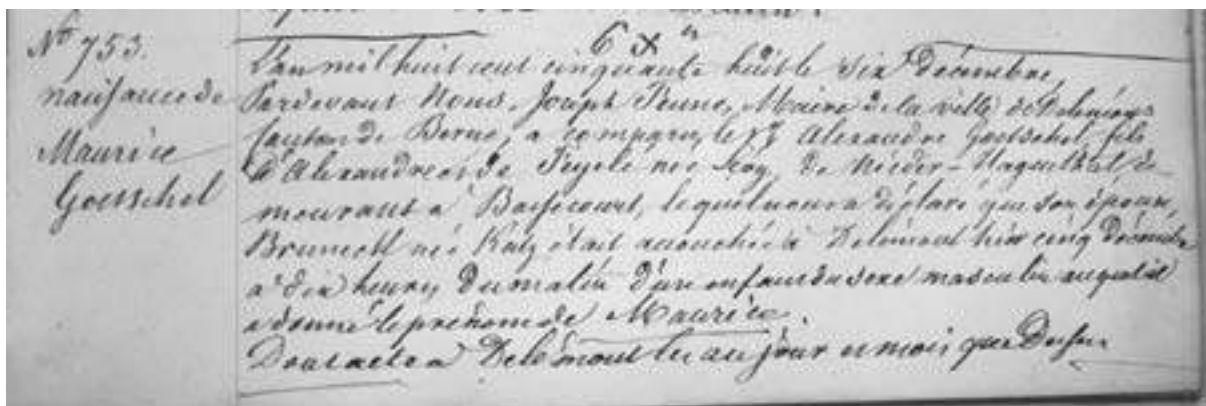 Nº 753.
naissance de
Maurice
Goetschel
6 Xre
L'an mil huit cent cinquante huit le six Décembre,
Pardevant Nous, Joseph Maire de la ville de Delémont
Canton de Berne, a comparu, le Sr Alexandre Goetschel fils
d'Alexandre et de née de Nieder-Hagenthal de-
meurant à Bassecourt, lequel nous a déclaré que son épouse,
née Katz était accouchée à Delémont hier cinq Décembre
à dix heures du matin d'un enfant du sexe masculin auquel il
a donné le prénom de Maurice.
Dont acte à Delémont les an jour et mois que Dessus